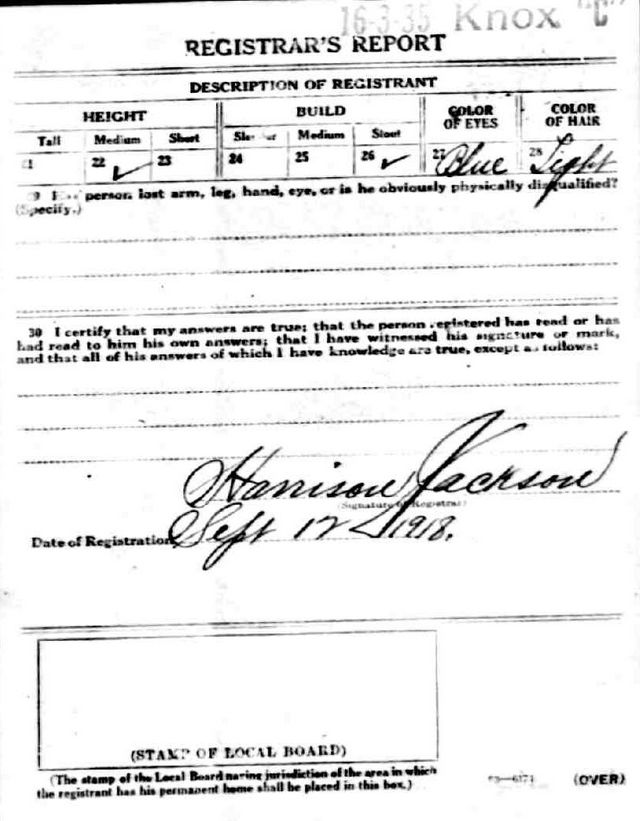 16-3-35 Knox "C"
REGISTRAR'S REPORT
DESCRIPTION OF REGISTRANT
HEIGHT BUILD COLOR OF EYES COLOR OF HAIR
Tall Medium Short Slender Medium Stout
21 22 ✓ 23 24 25 26 ✓ 27 Blue 28 Light
29 Has person lost arm, leg, hand, eye, or is he obviously physically disqualified?
(Specify.)
30 I certify that my answers are true; that the person registered has read or has
had read to him his own answers; that I have witnessed his signature or mark,
and that all of his answers of which I have knowledge are true, except as follows:
Harrison Jackson
(Signature of Registrar)
Date of Registration Sept 12 1918.
(STAMP OF LOCAL BOARD)
(The stamp of the Local Board having jurisdiction of the area in which
the registrant has his permanent home shall be placed in this box.)
(OVER)